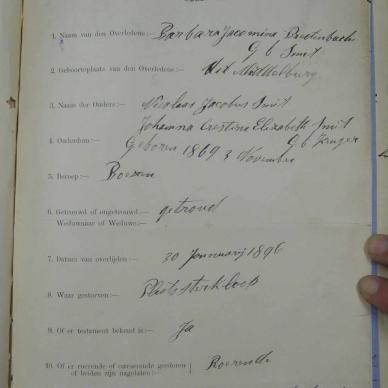 1. Naam van den Overledene:— Barbara Jacomina Breetenbach
G b Smit
2. Geboorteplaats van den Overledene:— Dist Middelburg
3. Naam der Ouders:— Nicolaas Jacobus Smit
Johanna Crestina Elizabeth Smit
4. Ouderdom:— Geboren 1869 3 November G b Kruger
5. Beroep:— Boerin
6. Getrouwd of ongetrouwd:— getroud
Weduwnaar of Weduwe:—
7. Datum van overlijden:— 30 Jannuarij 1896
8. Waar gestorven:— Plaats
9. Of er testament bekend is:— Ja
10. Of er roerende of onroerende goederen
of beiden zijn nagelaten:— Roerende